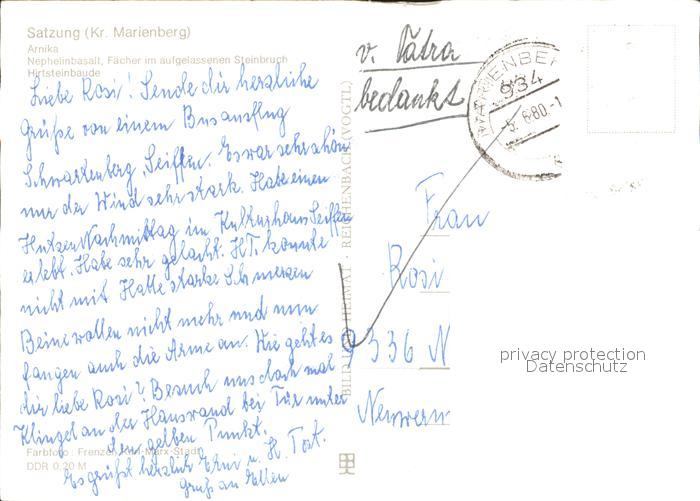 Satzung (Kr. Marienberg)
Arnika
Nephelinbasalt, Fächer im aufgelassenen Steinbruch
Hirtsteinbaude
Liebe Rosi! Sende dir herzliche
Grüße von einem Busausflug
Schwarzenberg, Seiffen. Es war sehr schön
nur der Wind sehr stark. Habe einen
Hutzen Nachmittag im Kulturhaus Seiffen
erlebt. Habe sehr gelacht. H.T. konnte
nicht mit. Hatte starke Schmerzen
Beine wollen nicht mehr und nun
fangen auch die Arme an. Wie geht es
dir liebe Rosi? Besuch uns doch mal
Klingel an der Hauswand bei Tür unter
dem gelben Punkt.
Es grüßt herzlich Erni u. H. Tat.
Gruß an Ellen
Farbfoto: Frenzel, Karl-Marx-Stadt
DDR 0,20 M
BILD UND HEIMAT · REICHENBACH (VOGTL)
v. Tätra
bedankt
MARIENBERG
934
-5. 6.80.-1
Frau
Rosi
9336 N
Neuwern
privacy protection
Datenschutz